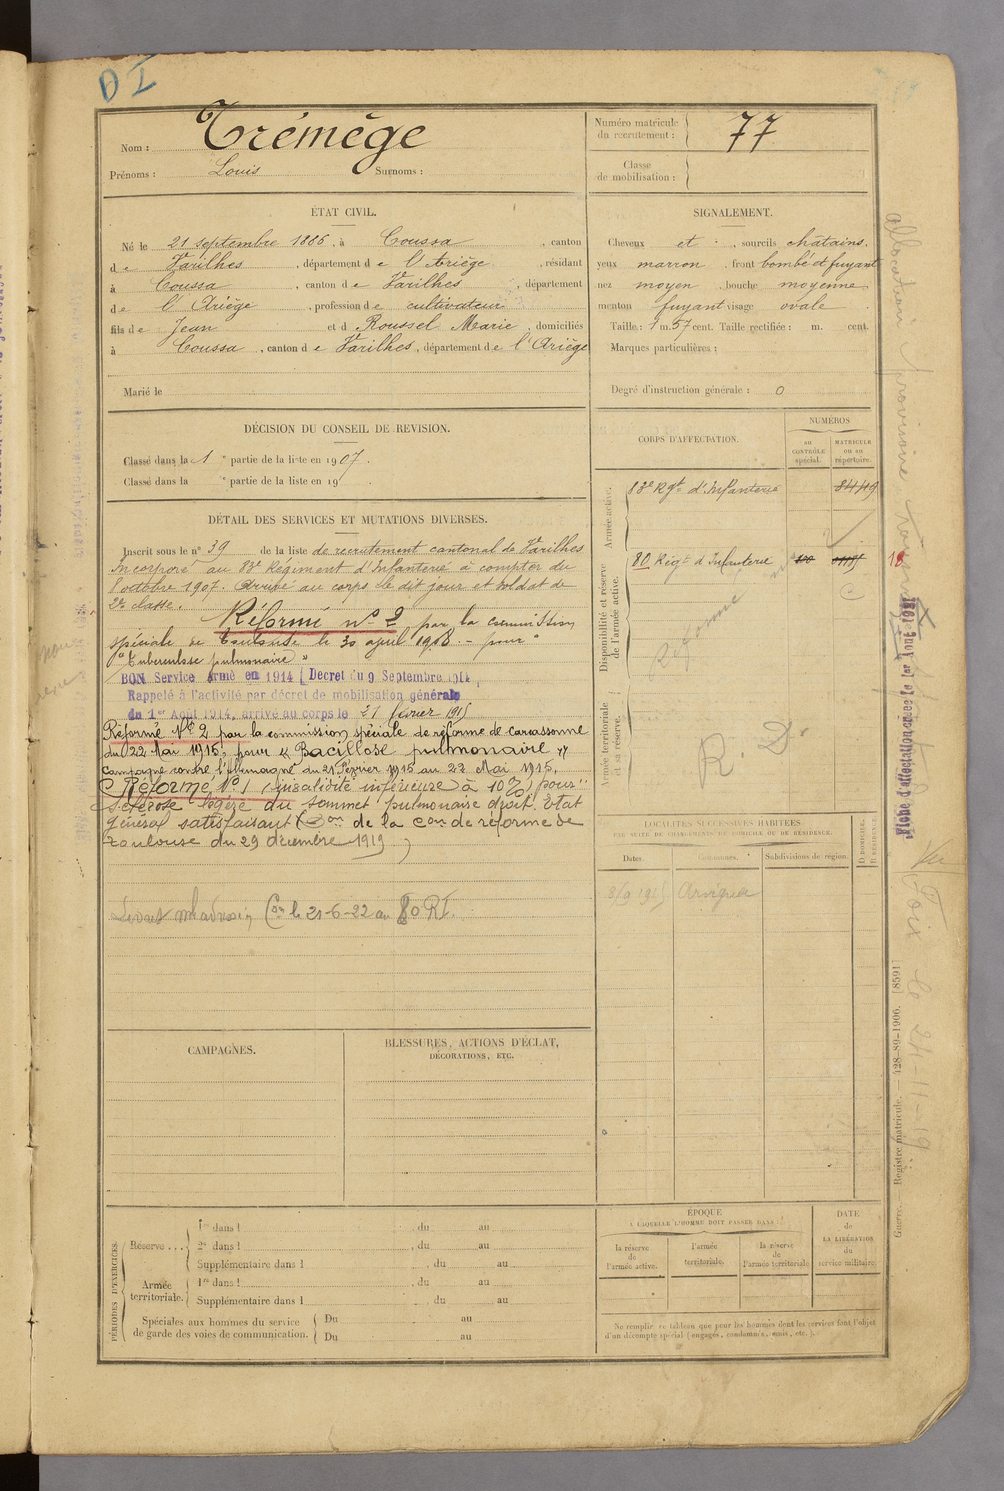 D I
Nom : Trémège
Prénoms : Louis Surnoms :
Numéro matricule
du recrutement : 77
Classe
de mobilisation :
ÉTAT CIVIL.
Né le 21 septembre 1886, à Coussa, canton
de Varilhes, département de l'Ariège, résidant
à Coussa, canton de Varilhes, département
de l'Ariège, profession de cultivateur
fils de Jean et d Roussel Marie, domiciliés
à Coussa, canton de Varilhes, département de l'Ariège
Marié le
SIGNALEMENT.
Cheveux et , sourcils châtains.
yeux marron front bombé et fuyant
nez moyen, bouche moyenne
menton fuyant visage ovale
Taille : 1 m. 57 cent. Taille rectifiée : m. cent.
Marques particulières :
Degré d'instruction générale : 0
DÉCISION DU CONSEIL DE REVISION.
Classé dans la 1 e partie de la liste en 1907.
Classé dans la e partie de la liste en 19
DÉTAIL DES SERVICES ET MUTATIONS DIVERSES.
Inscrit sous le n° 39 de la liste de recrutement cantonal de Varilhes
Incorporé au 83e Régiment d'Infanterie à compter du
8 octobre 1907. Arrivé au corps le dit jour et soldat de
2e classe.
Réformé n° 2 par la commission
spéciale de Toulouse le 30 avril 1908. - pour "
"Tuberculose pulmonaire"
BON Service Armé en 1914 (Decret du 9 Septembre 1914
Rappelé à l'activité par décret de mobilisation générale
du 1er Août 1914, arrivé au corps le 21 février 1915
Réformé N° 2 par la commission spéciale de réforme de Carcassonne
du 22 Mai 1915, pour « Bacillose pulmonaire »
Campagne contre l'Allemagne du 21 Février 1915 au 22 Mai 1915.
Réformé N° 1 (invalidité inférieure à 10%) pour "
Sclérose légère du sommet pulmonaire droit. Etat
général satisfaisant (Don de la Con de réforme de
Toulouse du 29 décembre 1919)
le 21-6-22 au 80 RI.
CORPS D'AFFECTATION.
NUMÉROS
au
CONTRÔLE
spécial.
MATRICULE
ou au
répertoire.
Armée active.
83e Rgt d'Infanterie
Disponibilité et réserve
de l'armée active.
80 Régt d'Infanterie
18
Réformé
Armée territoriale
et sa réserve.
R. D.
LOCALITÉS SUCCESSIVES HABITÉES
PAR SUITE DE CHANGEMENTS DE DOMICILE OU DE RÉSIDENCE.
Dates. Communes. Subdivisions de région. D DOMICILE. R RÉSIDENCE.
8/9 1915 Arvigna
CAMPAGNES.
BLESSURES, ACTIONS D'ÉCLAT,
DÉCORATIONS, ETC.
PÉRIODES D'EXERCICES.
Réserve . . .
1re dans l , du au
2e dans l , du au
Supplémentaire dans l , du au
Armée
territoriale.
1re dans l , du au
Supplémentaire dans l , du au
Spéciales aux hommes du service
de garde des voies de communication.
Du au
Du au
ÉPOQUE
À LAQUELLE L'HOMME DOIT PASSER DANS
la réserve
de
l'armée active.
l'armée
territoriale.
la réserve
de
l'armée territoriale
DATE
de
LA LIBÉRATION
du
service militaire.
Ne remplir ce tableau que pour les hommes dont les services font l'objet
d'un décompte spécial (engagés, condamnés, omis, etc.).
Guerre. — Registre matricule. — 428-89-1906. [8591]
Vu
Foix le 24-11-19